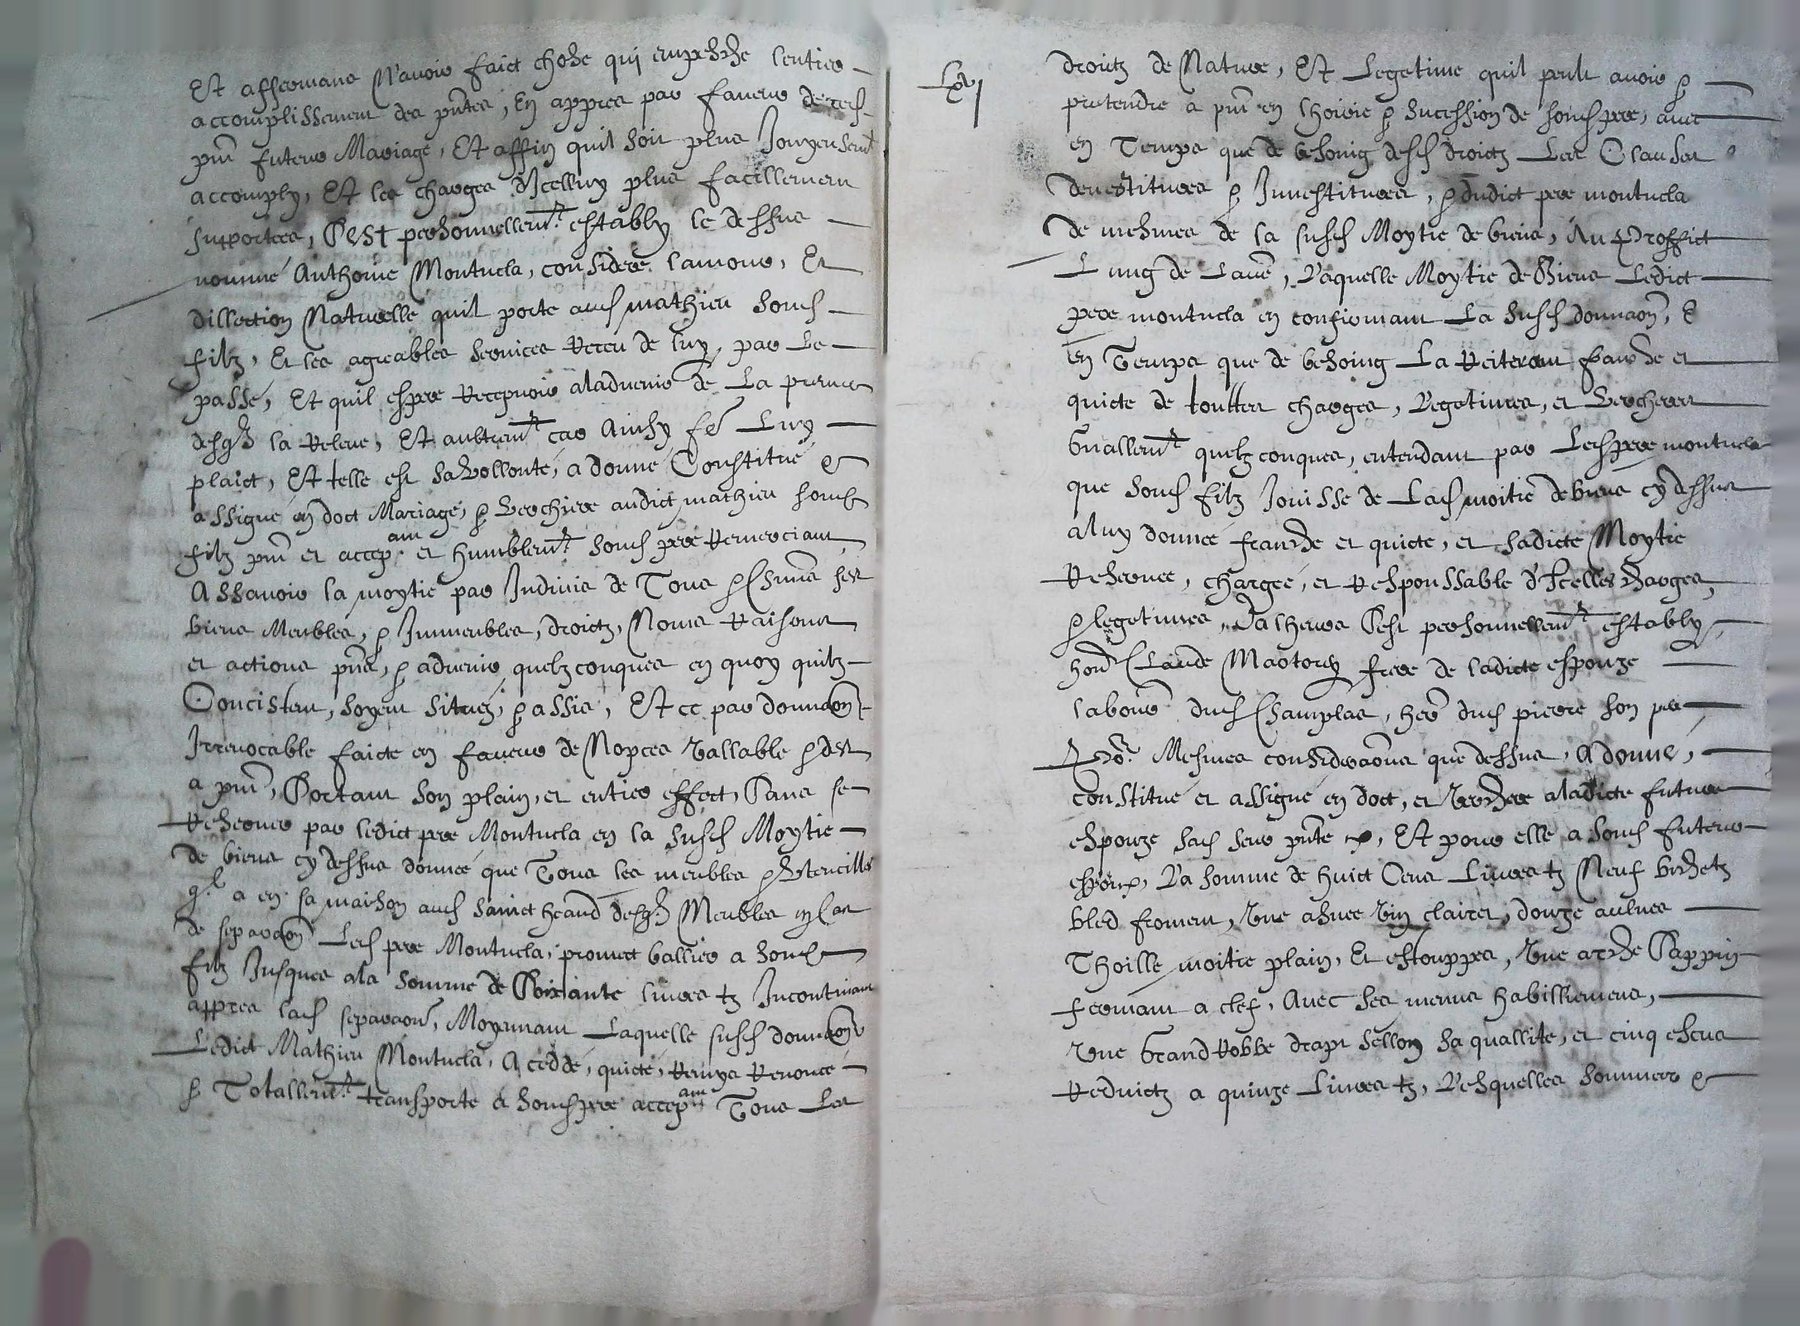 Et affermans N'avoir faict choze qui empesche lentier
accomplissement des pntes, En appres par faveur de cest
pnt futeur Mariage, Et affin quil soit plus Joyeusemt
accomply, Et les charges d'Icelluy plus facillement
supportees, C'est personnellemt estably le dessus
nommé Anthoine Montucla, considere lamour, Et
dillection Naturelle quil porte aud mathieu sond
filz, Et les agreables services Receu de luy, par Le
passé, Et quil espere Recepvoir aladvenir de La
la Releve, Et aultremt car Ainsy Luy
plaict, Et telle est sa Vollonté, a donné Constitué &
assigne en doct Mariage, & Verchiere audict mathieu sond
filz pnt et accepant et humblemt sond pere Remerciant,
Assavoir la moytie par Indivis de Tous & ses
biens Meubles, & Immeubles, droictz, Noms Raisons
et actions pns, & advenir quelzconques en quoy quilz
Concistent, soyent situez, & assis, Et ce par donnaon
Irrevocable faicte en faveur de Nopces Vallable & des
a pnt, Sortant son plain, et entier effect, Sans se
Reserver par ledict pere Montucla en la susd Moytie
de biens cy dessus donnee que Tous les meubles & Utencilles
ql a en sa maison aud Meubles
de separaon Led pere Montucla, promet ballier a sond
filz Jusques ala somme de livres tz Incontinant
appres lad separaon, Moyennant Laquelle susd donnaon
Ledict Mathieu Montucla, A ceddé, quicté, Remys Renoncé
& Totallemt transporte a sond pere accepant Tous Les
Lxvj
droictz de Nature, Et Legetime quil peult avoir &
pretendre a pnt en lhoirie & succession de sond pere, avec
en Temps que de besoing desd droictz Les Clauses
devestitures & Investitures, & dudict pere montucla
de mesmes de la susd Moytie de biens, Au Proffict
Lung de Laue, Laquelle Moytie de Biens Ledict
pere montucla en confirmant La susd donnaon, &
en Temps que de besoing La Reiterant franche et
quicte de touttes charges, Legetimes, et Vercheres
Gnallemt quelzconques, entendant par Led pere montucla
que sond filz Jouisse de Lad moitie de biens cy dessus
a luy donnée franche et quicte, et sadicte Moytie
Reservee, chargee, et Responssable d'Icelles charges,
& legetimes, Dalheurs C'est personnellemt estably
hon Claude Martorey frere de ladicte espouze
labour dud Champlas, her dud pierre son pere
Mesmes consideraons que dessus, A donné,
constitué et assigné en doct, et Verchere aladicte future
espouze sad seur pnte &, Et pour elle a sond futeur
espoux, La somme de huict Cens Livres tz Neuf bichetz
bled froment, Une asnee Vin clairet, douze aulnes
Thoille moitie plain, Et estouppes, Une arche Sappin
fermant a clef, Avec ses menus habilliemens,
Une Grand Robbe drapt sellon sa quallite, et cinq escus
Reduictz a quinze Livres tz, Lesquelles sommes &